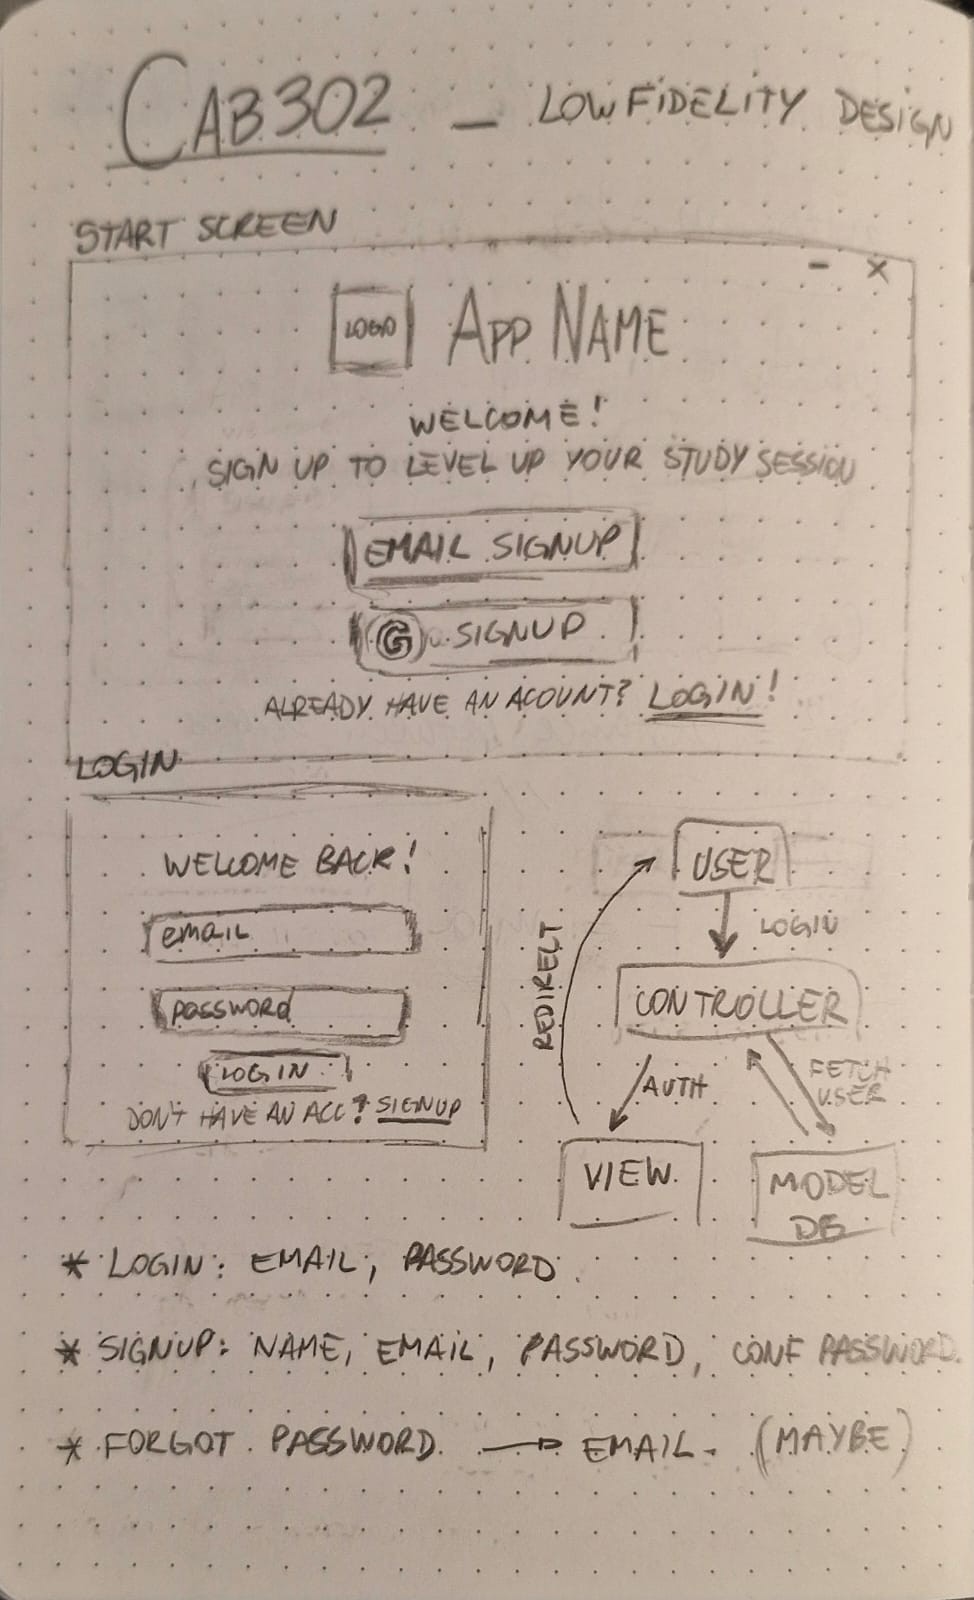 CAB302 – LOW FIDELITY DESIGN
START SCREEN
– X
LOGO APP NAME
WELCOME!
SIGN UP TO LEVEL UP YOUR STUDY SESSION
EMAIL SIGNUP
G SIGNUP
ALREADY HAVE AN ACOUNT? LOGIN!
LOGIN
WELCOME BACK!
email
password
LOGIN
DON'T HAVE AN ACC? SIGNUP
USER
LOGIN
REDIRECT
CONTROLLER
AUTH
FETCH
USER
VIEW
MODEL
DB
* LOGIN: EMAIL, PASSWORD.
* SIGNUP: NAME, EMAIL, PASSWORD, CONF PASSWORD.
* FORGOT PASSWORD → EMAIL. (MAYBE)